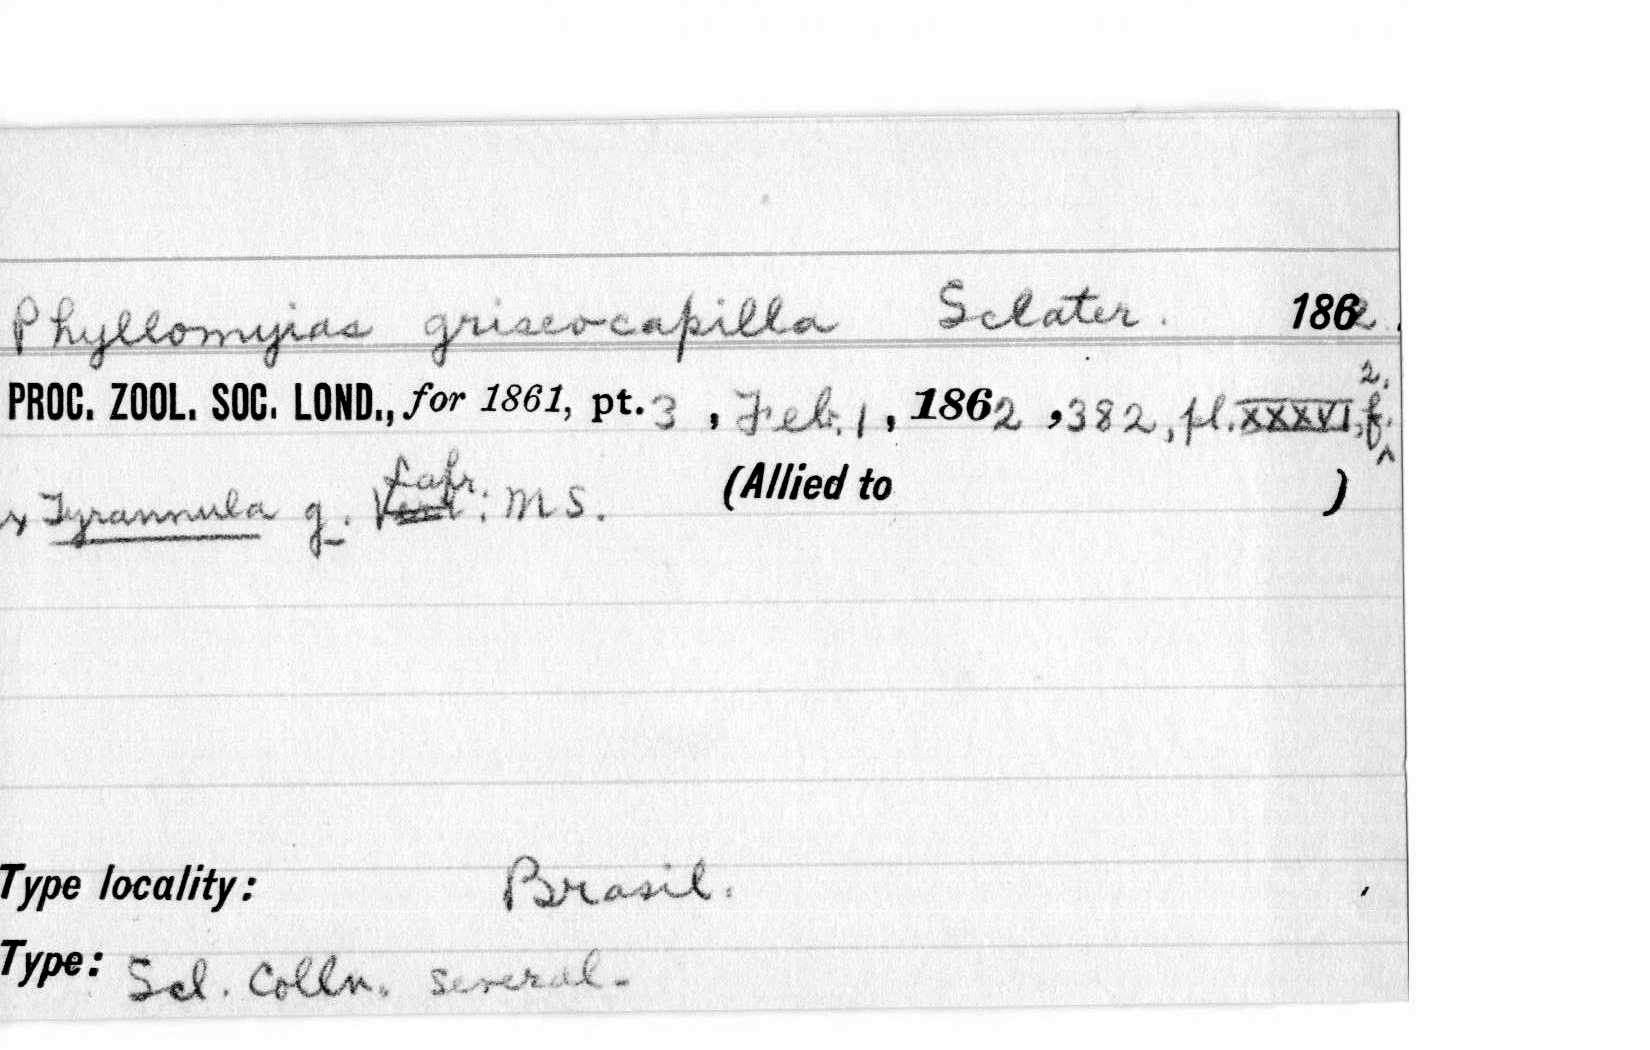 Phyllomyias griseocapilla Sclater. 1862.
PROC. ZOOL. SOC. LOND., for 1861, pt. 3, Feb. 1, 1862, 382, pl. XXXVI, f. 2.
x Tyrannula g. Lafr. MS. (Allied to )
Type locality: Brasil.
Type: Scl. Colln. several.